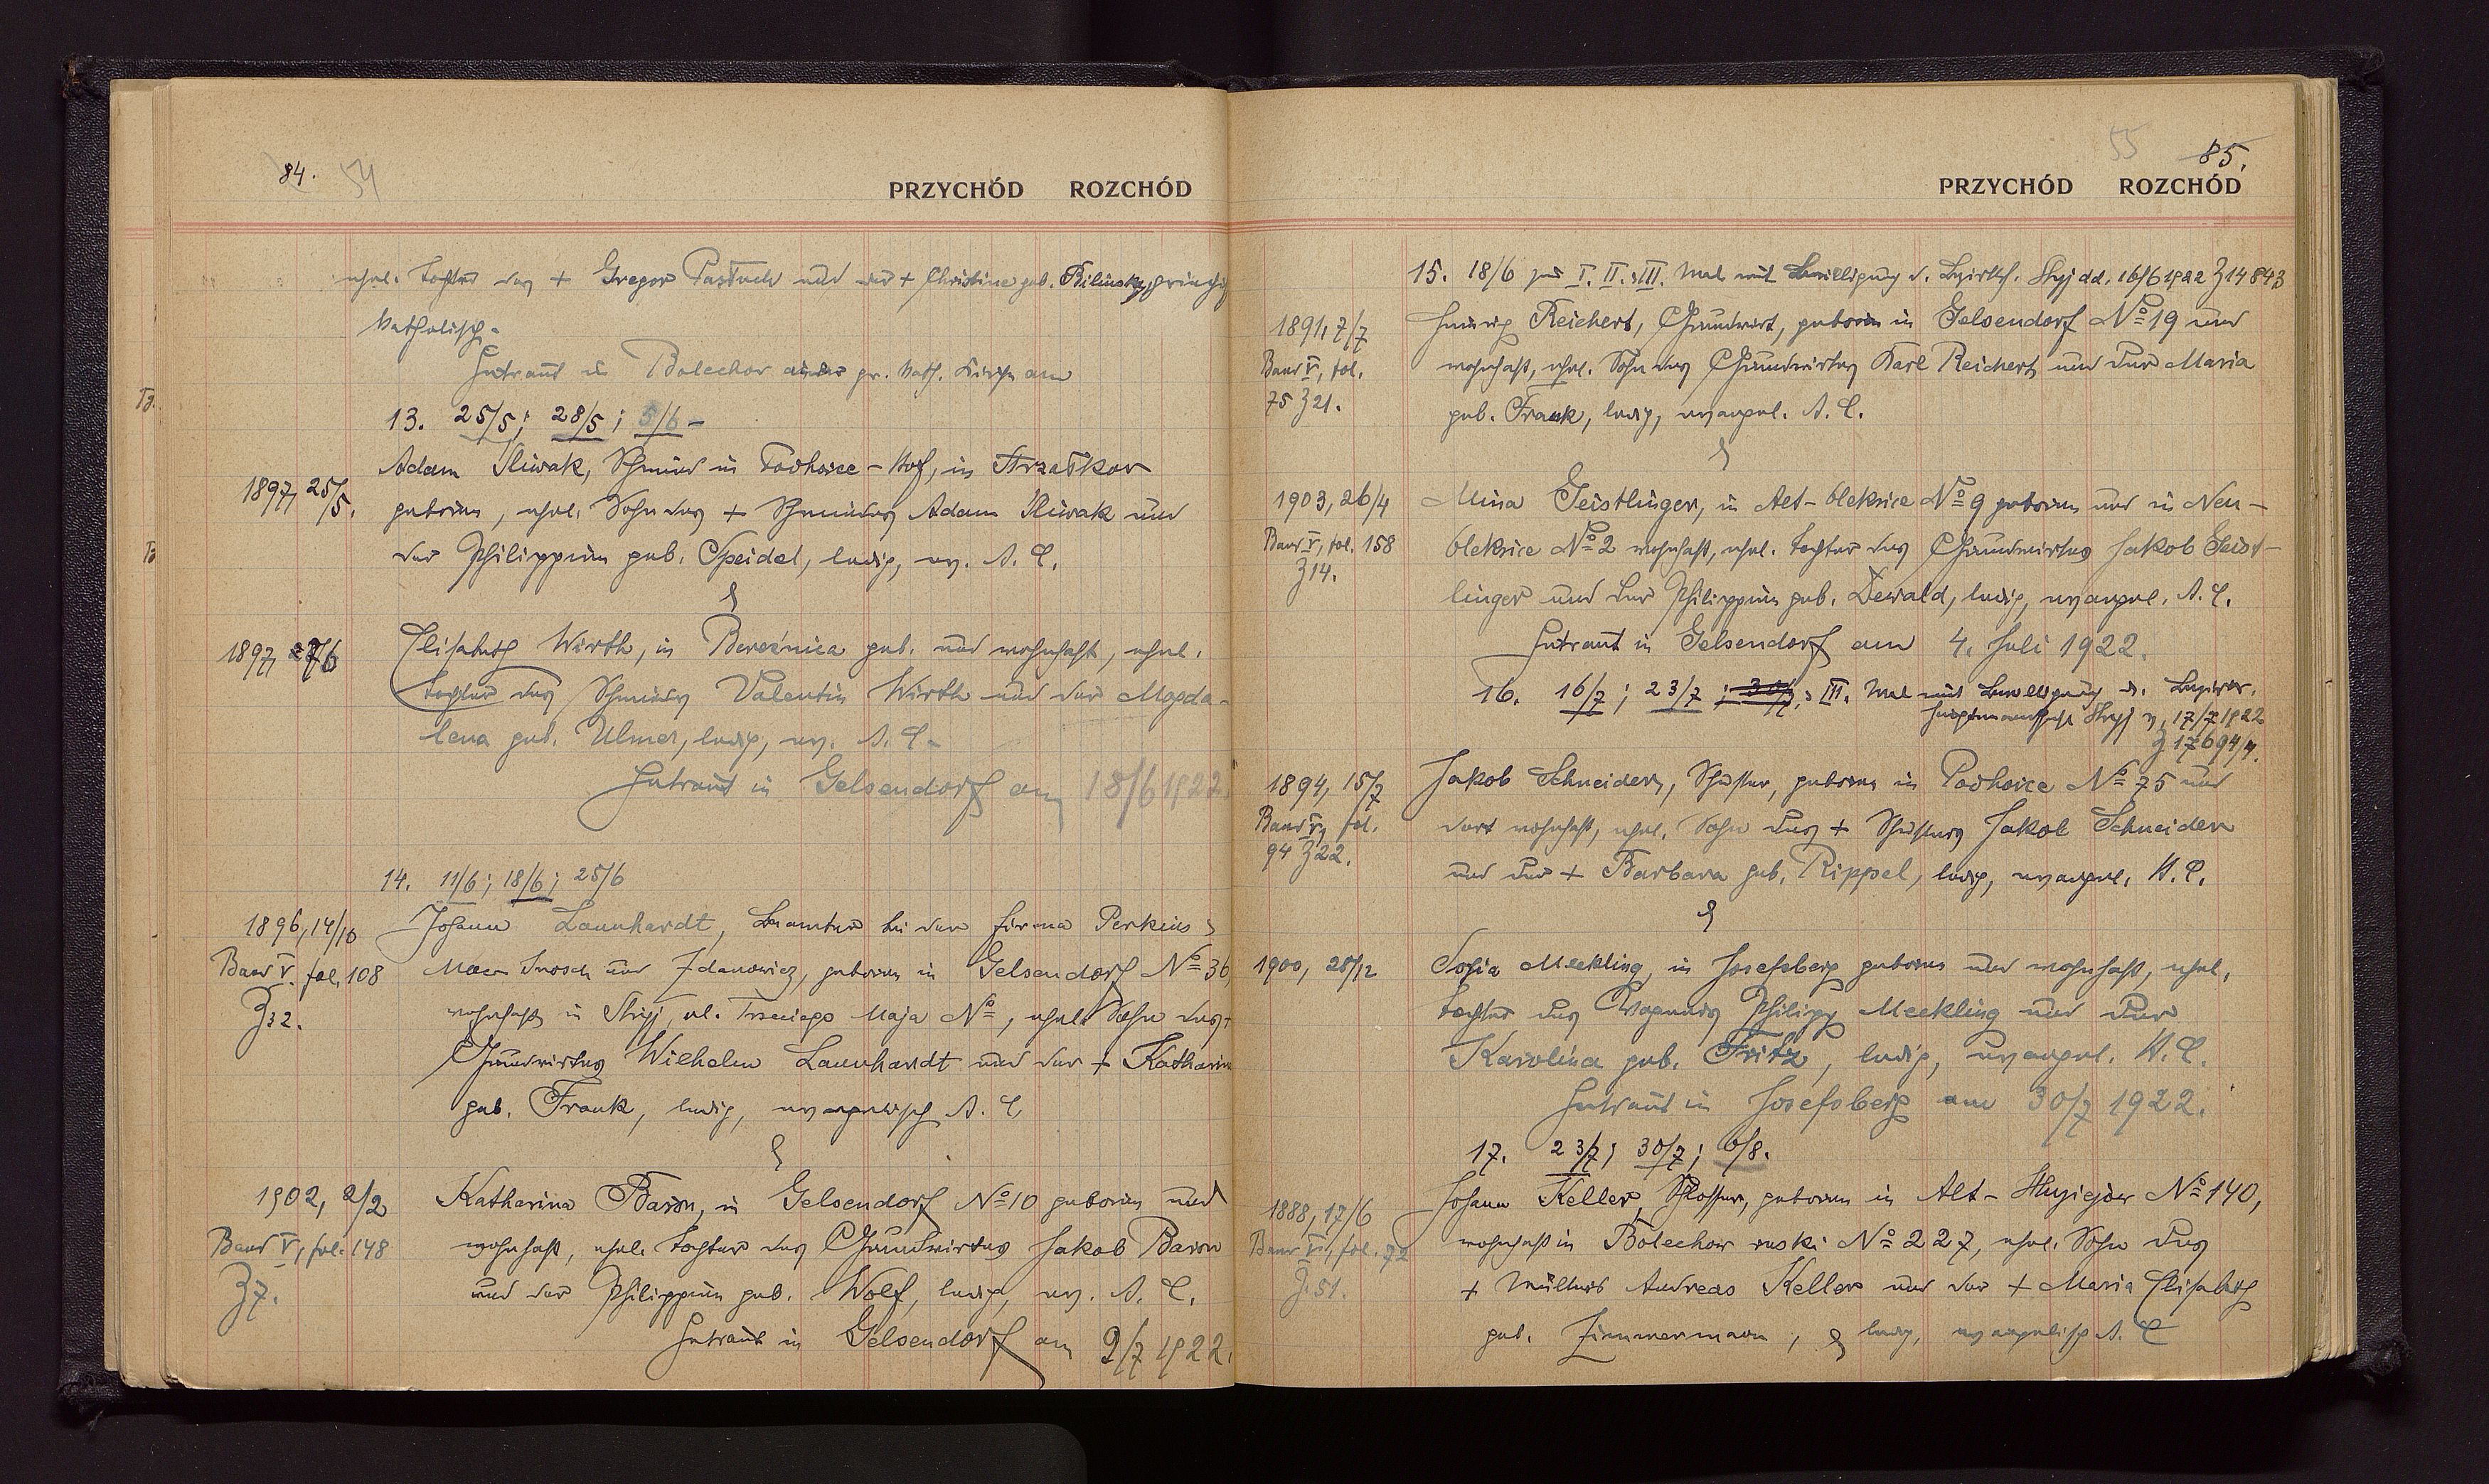 84. 54
PRZYCHÓD ROZCHÓD
ehel. Tochter des + Gregor Pastuch und der + Christine geb. Bilinsky, griechisch
katholisch.
Getraut in Bolechow in der gr. kath. Kirche am
13. 25/5; 28/5; 5/6 -
Adam Sliwak, Schmied in Podhorce-Hof, in Strzałkow
1897, 25/5.
geboren, ehel. Sohn des + Schmiedes Adam Sliwak und
der Philippine geb. Speidel, ledig, ev. A. C.
&
1897,
Elisabeth Wirth, in Bereźnica geb. und wohnhaft, ehel.
Tochter des Schmiedes Valentin Wirth und der Magda-
lena geb. Ulmer, ledig, ev. A. C.
Getraut in Gelsendorf am 18/6 1922.
14. 11/6; 18/6; 25/6
1896, 14/10
Johann Launhardt, Beamter bei der Firma Perkins,
Band V. fol. 108
Mac Intosch und Zdanowicz, geboren in Gelsendorf No 36
Z 32.
wohnhaft in Stryj, ul. Trzeciego Maja No , ehel. Sohn des +
Grundwirtes Wilhelm Launhardt und der + Katharina
geb. Frank, ledig, evangelisch A. C.
&
1902, 2/2
Katharina Baron, in Gelsendorf No 10 geboren und
Band V, fol. 148
wohnhaft, ehel. Tochter des Grundwirtes Jakob Baron
Z 7.
und der Philippine geb. Wolf, ledig, ev. A. C.
Getraut in Gelsendorf am 9/7 1922.
55 85.
PRZYCHÓD ROZCHÓD
15. 18/6 zum I. II. & III. Mal mit Bewilligung d. Bezirksh. Stryj dd. 16/6 1922 Z 14843
1891, 7/7
Ludwig Reichert, Grundwirt, geboren in Gelsendorf No 19 und
Band V, fol.
wohnhaft, ehel. Sohn des Grundwirtes Karl Reichert und der Maria
75 Z 21.
geb. Frank, ledig, evangel. A. C.
&
1903, 26/4
Mina Geistlinger, in Alt-Oleksice No 9 geboren und in Neu-
Band V, fol. 158
Oleksice No 2 wohnhaft, ehel. Tochter des Grundwirtes Jakob Geist-
Z 14.
linger und der Philippine geb. Dewald, ledig, evangel. A. C.
Getraut in Gelsendorf am 4. Juli 1922.
16. 16/7; 23/7; 30/7, & III. Mal mit Bewilligung d. Bezirks-
hauptmannschaft Stryj v. 17/7 1922
Z 17694/4.
1894, 15/7
Jakob Schneider, Schuster, geboren in Podhorce No 75 und
Band V, fol.
dort wohnhaft, ehel. Sohn des + Schusters Jakob Schneider
94 Z 22.
und der + Barbara geb. Rippel, ledig, evangel. H. C.
&
1900, 28/12
Sofia Meckling, in Josefsberg geboren und wohnhaft, ehel.
Tochter des Wagners Philipp Meckling und der
Karolina geb. Fritz, ledig, evangel. H. C.
Getraut in Josefsberg am 30/7 1922.
17. 23/7; 30/7; 6/8.
1888, 17/6
Johann Keller, Schlosser, geboren in Alt-Stryjejów No 140,
Band V, fol. 72
wohnhaft in Bolechow ruski No 227, ehel. Sohn des
Z. 51.
+ Müllers Andreas Keller und der + Maria Elisabeth
geb. Zimmermann, ledig, evangelisch A. C.